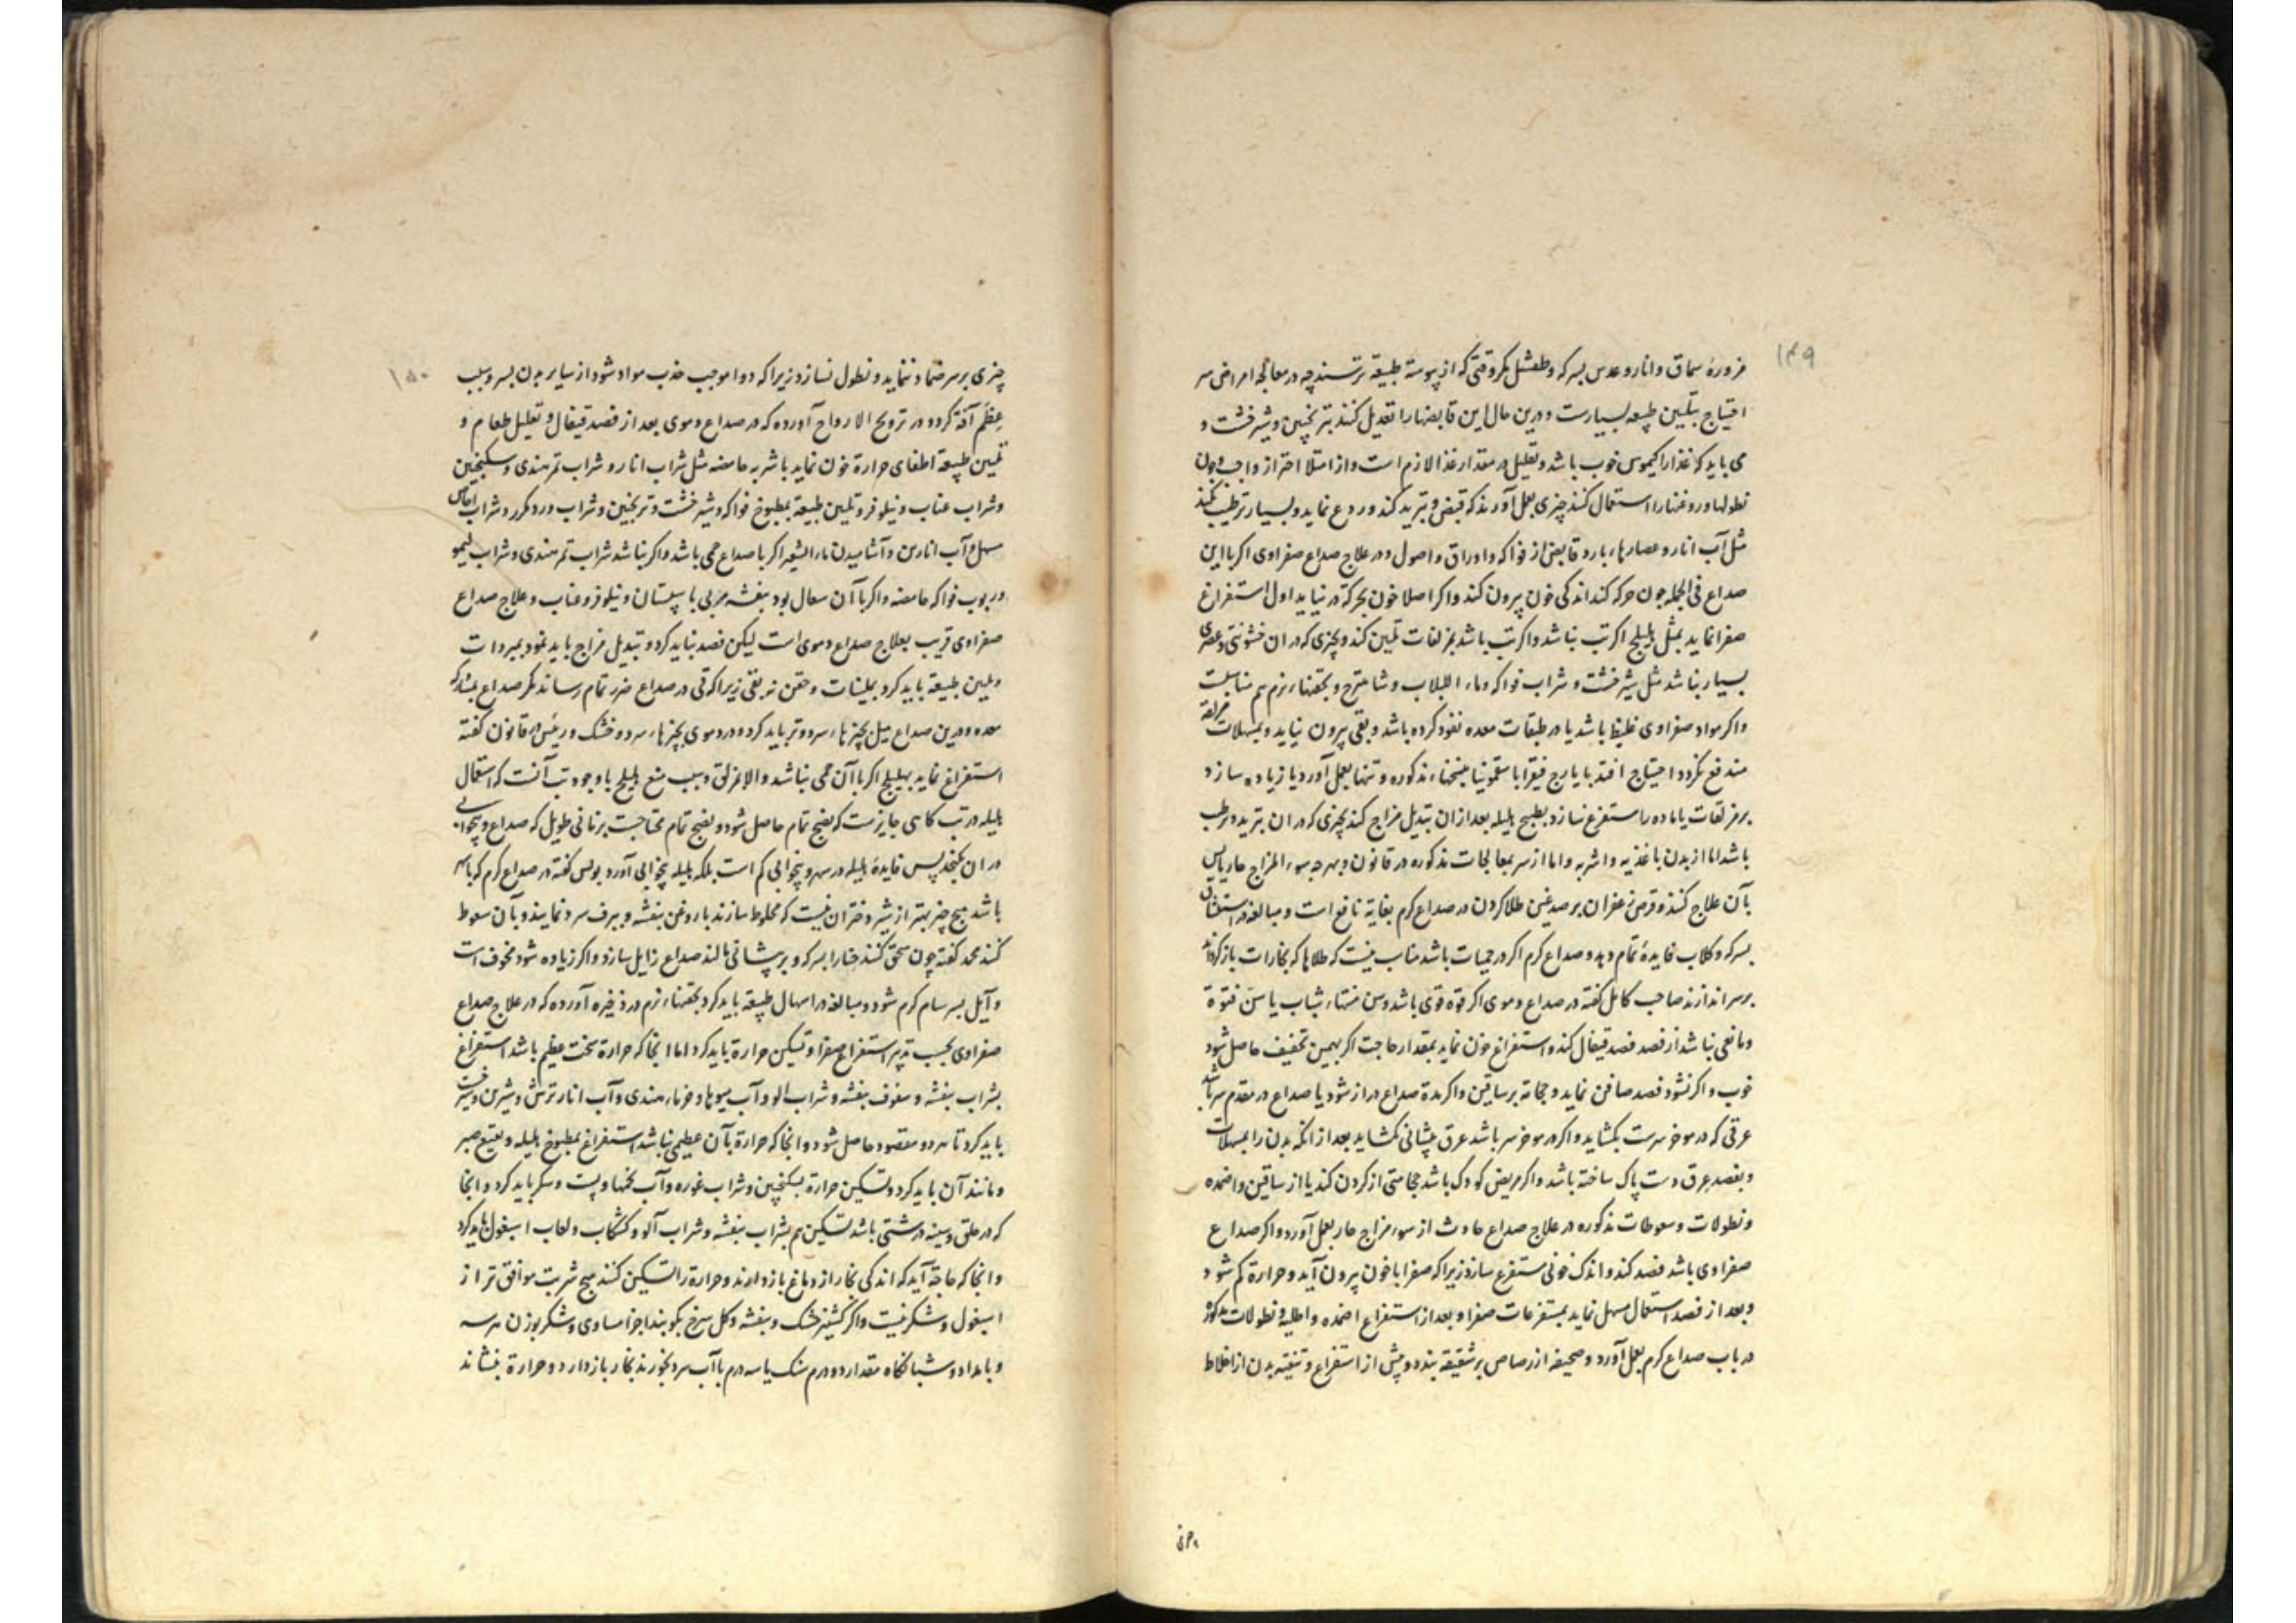 ۱۴۹
مزورهٔ سماق و انار و عدس بسرکه و طفشل مکر وقتی که از یبوسة طبیعة ترسند چه در معالجه امراض سر
احتیاج بتلیین طبیعه بسیارست و درین حال این قابضها را تعدیل کنند بترنجبین و شیرخشت و
می باید که غذا را کیموس خوب باشد و تقلیل در مقدار غذا لازم است و از امتلا احتراز واجب و چون
نطولها و روغنها را استعمال کنند چیزی بعمل آورند که قبض و تبرید کند و ردع نماید و بسیار ترطیب نکند
مثل آب انار و عصارهاء بارد قابض از فواکه و اوراق و اصول و در علاج صداع صفراوی اکر با این
صداع فی الجمله خون حرکه کند اندکی خون بیرون کند و اکر اصلا خون بحرکة در نیاید اول استفراغ
صفرا نماید بمثل هلیلج اکر تب نباشد و اکر تب باشد بمزلقات تلیین کند و بچیزی که در ان خشونتی و عصری
بسیار نباشد مثل شیرخشت و شراب فواکه و ماء اللبلاب و شاهترج و بحقنهاء نرم هم مناسبست
و اکر مواد صفراوی غلیظ باشد یا در طبقات معده نفوذ کرده باشد و بقی بیرون نیاید و بمسهلات مزلقه
مندفع نکردد احتیاج افتد بایارج فیقرا با سقمونیا بنسخهاء مذکوره و تنها بعمل آورد یا زیاده سازد
بر مزلقات یا ماده را مستفرغ سازد بطبیخ هلیله بعد ازان تبدیل مزاج کند بچیزی که در ان تبرید و ترطیب
باشد اما از بدن باغذیه و اشربه و اما از سر بمعالجات مذکوره در قانون و بهرچه سوء المزاج حار یابس
بآن علاج کنند و قرص زعفران بر صدغین طلا کردن در صداع کرم بغایة نافع است و مبالغه در استنشاق
بسرکه و کلاب فایدهٔ تمام دهد و صداع کرم اکر در حمیات باشد مناسب نیست که طلاها که بخارات بازکرداند
بر سر اندازند صاحب کامل کفته در صداع دموی اکر قوة قوی باشد و سن منتهاء شباب یا سن فتوة
و مانعی نباشد از فصد فصد قیفال کند و استفراغ خون نماید بمقدار حاجت اکر بهمین تخفیف حاصل شود
خوب و اکر نشود فصد صافن نماید و حجامة بر ساقین و اکر مدة صداع دراز شود یا صداع در مقدم سر باشد
عرقی که در موخر سرست بکشاید و اکر در موخر سر باشد عرق پیشانی بکشاید بعد از انکه بدن را بمسهلات
و بفصد عرق دست پاک ساخته باشد و اکر مریض کودک باشد حجامتی از کردن کند یا از ساقین و اضمده
و نطولات و سعوطات مذکوره در علاج صداع حادث از سوء مزاج حار بعمل آورد و اکر صداع
صفراوی باشد فصد کند و اندک خونی مستفرغ سازد زیرا که صفرا با خون بیرون آید و حرارة کم شود
و بعد از فصد استعمال مسهل نماید بمستفرغات صفرا و بعد از استفراغ اضمده و اطلیه و نطولات مذکوره
در باب صداع کرم بعمل آورد و صحیفه از رصاص بر شقیقه بندد و پیش از استفراغ و تنقیه بدن از اخلاط
۱۵۰
چیزی بر سر ضماد ننماید و نطول نسازد زیرا که دوا موجب جذب مواد شود از سایر بدن بسر و سبب
عظم آفة کردد و در ترویح الارواح آورده که در صداع دموی بعد از فصد قیفال و تقلیل طعام و
تلیین طبیعة اطفای حرارة خون نماید باشربه حامضه مثل شراب انار و شراب تمر هندی و سکنجبین
و شراب عناب و نیلوفر و تلیین طبیعة بمطبوخ فواکه و شیرخشت و ترنجبین و شراب ورد مکرر و شراب اجاص
مسهل و آب انارین و آشامیدن ماء الشعیر اکر با صداع حمی باشد و اکر نباشد شراب تمر هندی و شراب لیمو
و ربوب فواکه حامضه و اکر با آن سعال بود بنفشه مربی با سپستان و نیلوفر و عناب و علاج صداع
صفراوی قریب بعلاج صداع دموی است لیکن فصد نباید کرد و تبدیل مزاج باید نمود بمبردات
و تلیین طبیعة باید کرد بملینات و حقن نه بقی زیرا که قی در صداع ضرر تمام رساند مکر صداع بمشارکه
معده و درین صداع میل بچیزهاء سرد و تر باید کرد و در دموی بچیزهاء سرد و خشک و رئیس در قانون کفته
استفراغ نماید بهلیلج اکر با آن حمی نباشد و الا بمزلق و سبب منع هلیلج با وجود تب آنست که استعمال
هلیله در تب کاهی جایزست که نضج تمام حاصل شود و نضج تمام محتاجست بزمانی طویل که صداع و بیخوابی
در ان نکنجد پس فایدهٔ هلیله در سهر و بیخوابی کم است بلکه هلیله بیخوابی آورد یونس کفته در صداع کرم که با سهر
باشد هیچ چیز بهتر از شیر دختران نیست که مخلوط سازند با روغن بنفشه و ببرف سرد نمایند و بآن سعوط
کنند محمد کفته چون سحق کنند حنا را بسرکه و بر پیشانی مالند صداع زایل سازد و اکر زیاده شود مخوف است
و آیل بسرسام کرم شود و مبالغه در اسهال طبیعة باید کرد بحقنهاء نرم و در ذخیره آورده که در علاج صداع
صفراوی بحسب تدبیر استفراغ صفرا و تسکین حرارة باید کرد اما انجا که حرارة سخت عظیم باشد استفراغ
بشراب بنفشه و سفوف بنفشه و شراب الو و آب میوها و خرماء هندی و آب انار ترش و شیرین و شیرخشت
باید کرد تا هر دو مقصود حاصل شود و انجا که حرارة بآن عظیمی نباشد استفراغ بمطبوخ هلیله و بنقیع صبر
و مانند آن باید کرد و تسکین حرارة بسکنجبین و شراب غوره و آب تخمها و پست و سکر باید کرد و انجا
که در حلق و سینه درشتی باشد تسکین هم بشراب بنفشه و شراب آلو و کشکاب و لعاب اسبغول باید کرد
و انجا که حاجة آید که اندکی بخار از دماغ بازدارند و حرارة را تسکین کنند هیچ شربت موافق تر از
اسبغول و شکر نیست و اکر کشنیز خشک و بنفشه و کل سرخ بکوبند اجزا مساوی و شکر بوزن هر سه
و بامداد و شبانکاه مقدار دو درم سنک یا سه درم باآب سرد بخورند بخار بازدارد و حرارة بنشاند